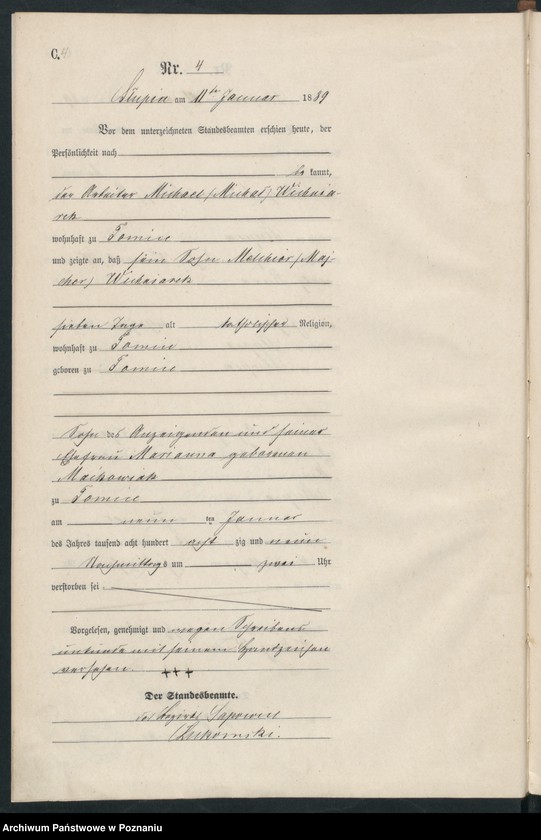 C. 4.
Nr. 4
Słupia am 11ten Januar 1889
Vor dem unterzeichneten Standesbeamten erschien heute, der
Persönlichkeit nach
be kannt,
der Arbeiter Michael (Michał) Wichnia-
rek
wohnhaft zu Tomice
und zeigte an, daß sein Sohn Melchior (Maj-
cher) Wichniarek
sieben Tage alt katholischer Religion,
wohnhaft zu Tomice
geboren zu Tomice
Sohn des Anzeigenden und seiner
Ehefrau Marianna geborenen
Maćkowiak
zu Tomice
am neun ten Januar
des Jahres tausend acht hundert acht zig und neun
Nachmittags um zwei Uhr
verstorben sei
Vorgelesen, genehmigt und wegen Schreibens
unkunde mit seinem Handzeichen
versehen
+++
Der Standesbeamte.
des Bezirks Sapowice
Archiwum Państwowe w Poznaniu